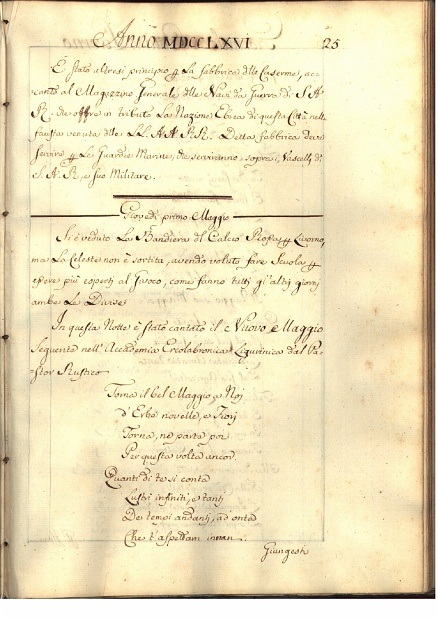 Anno MDCCLXVI 25
È stato altresi principio p. la fabbrica delle Caserme, ac-
canto al Magazzino Generale delle Navi da Guerra di S. A.
R. che offre in tributo La Nazione Ebrea di questa Città nella
fausta venuta delle LL. AA. RR. Detta fabbrica deve
servire p. Le Guardie Marine, che serviranno sopra i Vascelli di
S. A. R. e suo Militare.
Giovedì primo Maggio
Si è veduto La Bandiera del Calcio Rossa p. Livorno,
ma La Celeste non è sortita, avendo voluto fare Scuola p.
essere più esperti al Giuoco, come fanno tutti gl'altri giorni
ambe Le Divise
In questa Notte è stato cantato il Nuovo Maggio
seguente nell'Accademia Ercolabronica Ligurinica dal Pa-
stor Rustico
Torna il bel Maggio a Noi
d'Erbe novelle, e Fiori
Torna, nè parta poi
Per questa volta ancor.
Quanti di te si conta
Lustri infiniti, e tanti
De tempi andanti, ad onta
Che t'aspettam
Giungesti